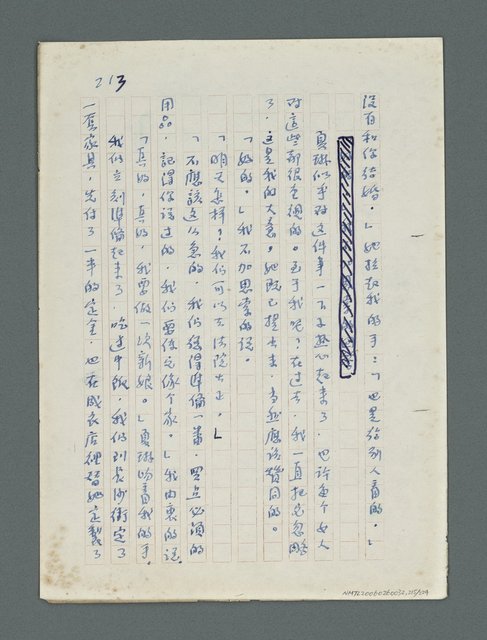 213
沒有和你結婚。」她拉起我的手:「也是給別人看的。」
夏琳似乎對這件事一下子熱心起來了,也許每個女人
對這些都很重視的。至于我呢?在過去,我一直把它忽略
了,這是我的大意。她既已提出來,當然應該贊同的。
「好的。」我不加思索的說。
「明天怎樣?我們可以去法院公正。」
「不應該這么急的,我們總得準備一番,買点必須的
用品,記得你說过的,我們要像完像个家。」我由衷的說。
「真的,真的,我要做一次新娘。」夏琳吻着我的手。
我們立刻準備起來了,吃过中飯,我們到長沙街定了
一套家具,先付了一半的定金,也在成衣店裡替她定製了
NMTL20060260032,215/224